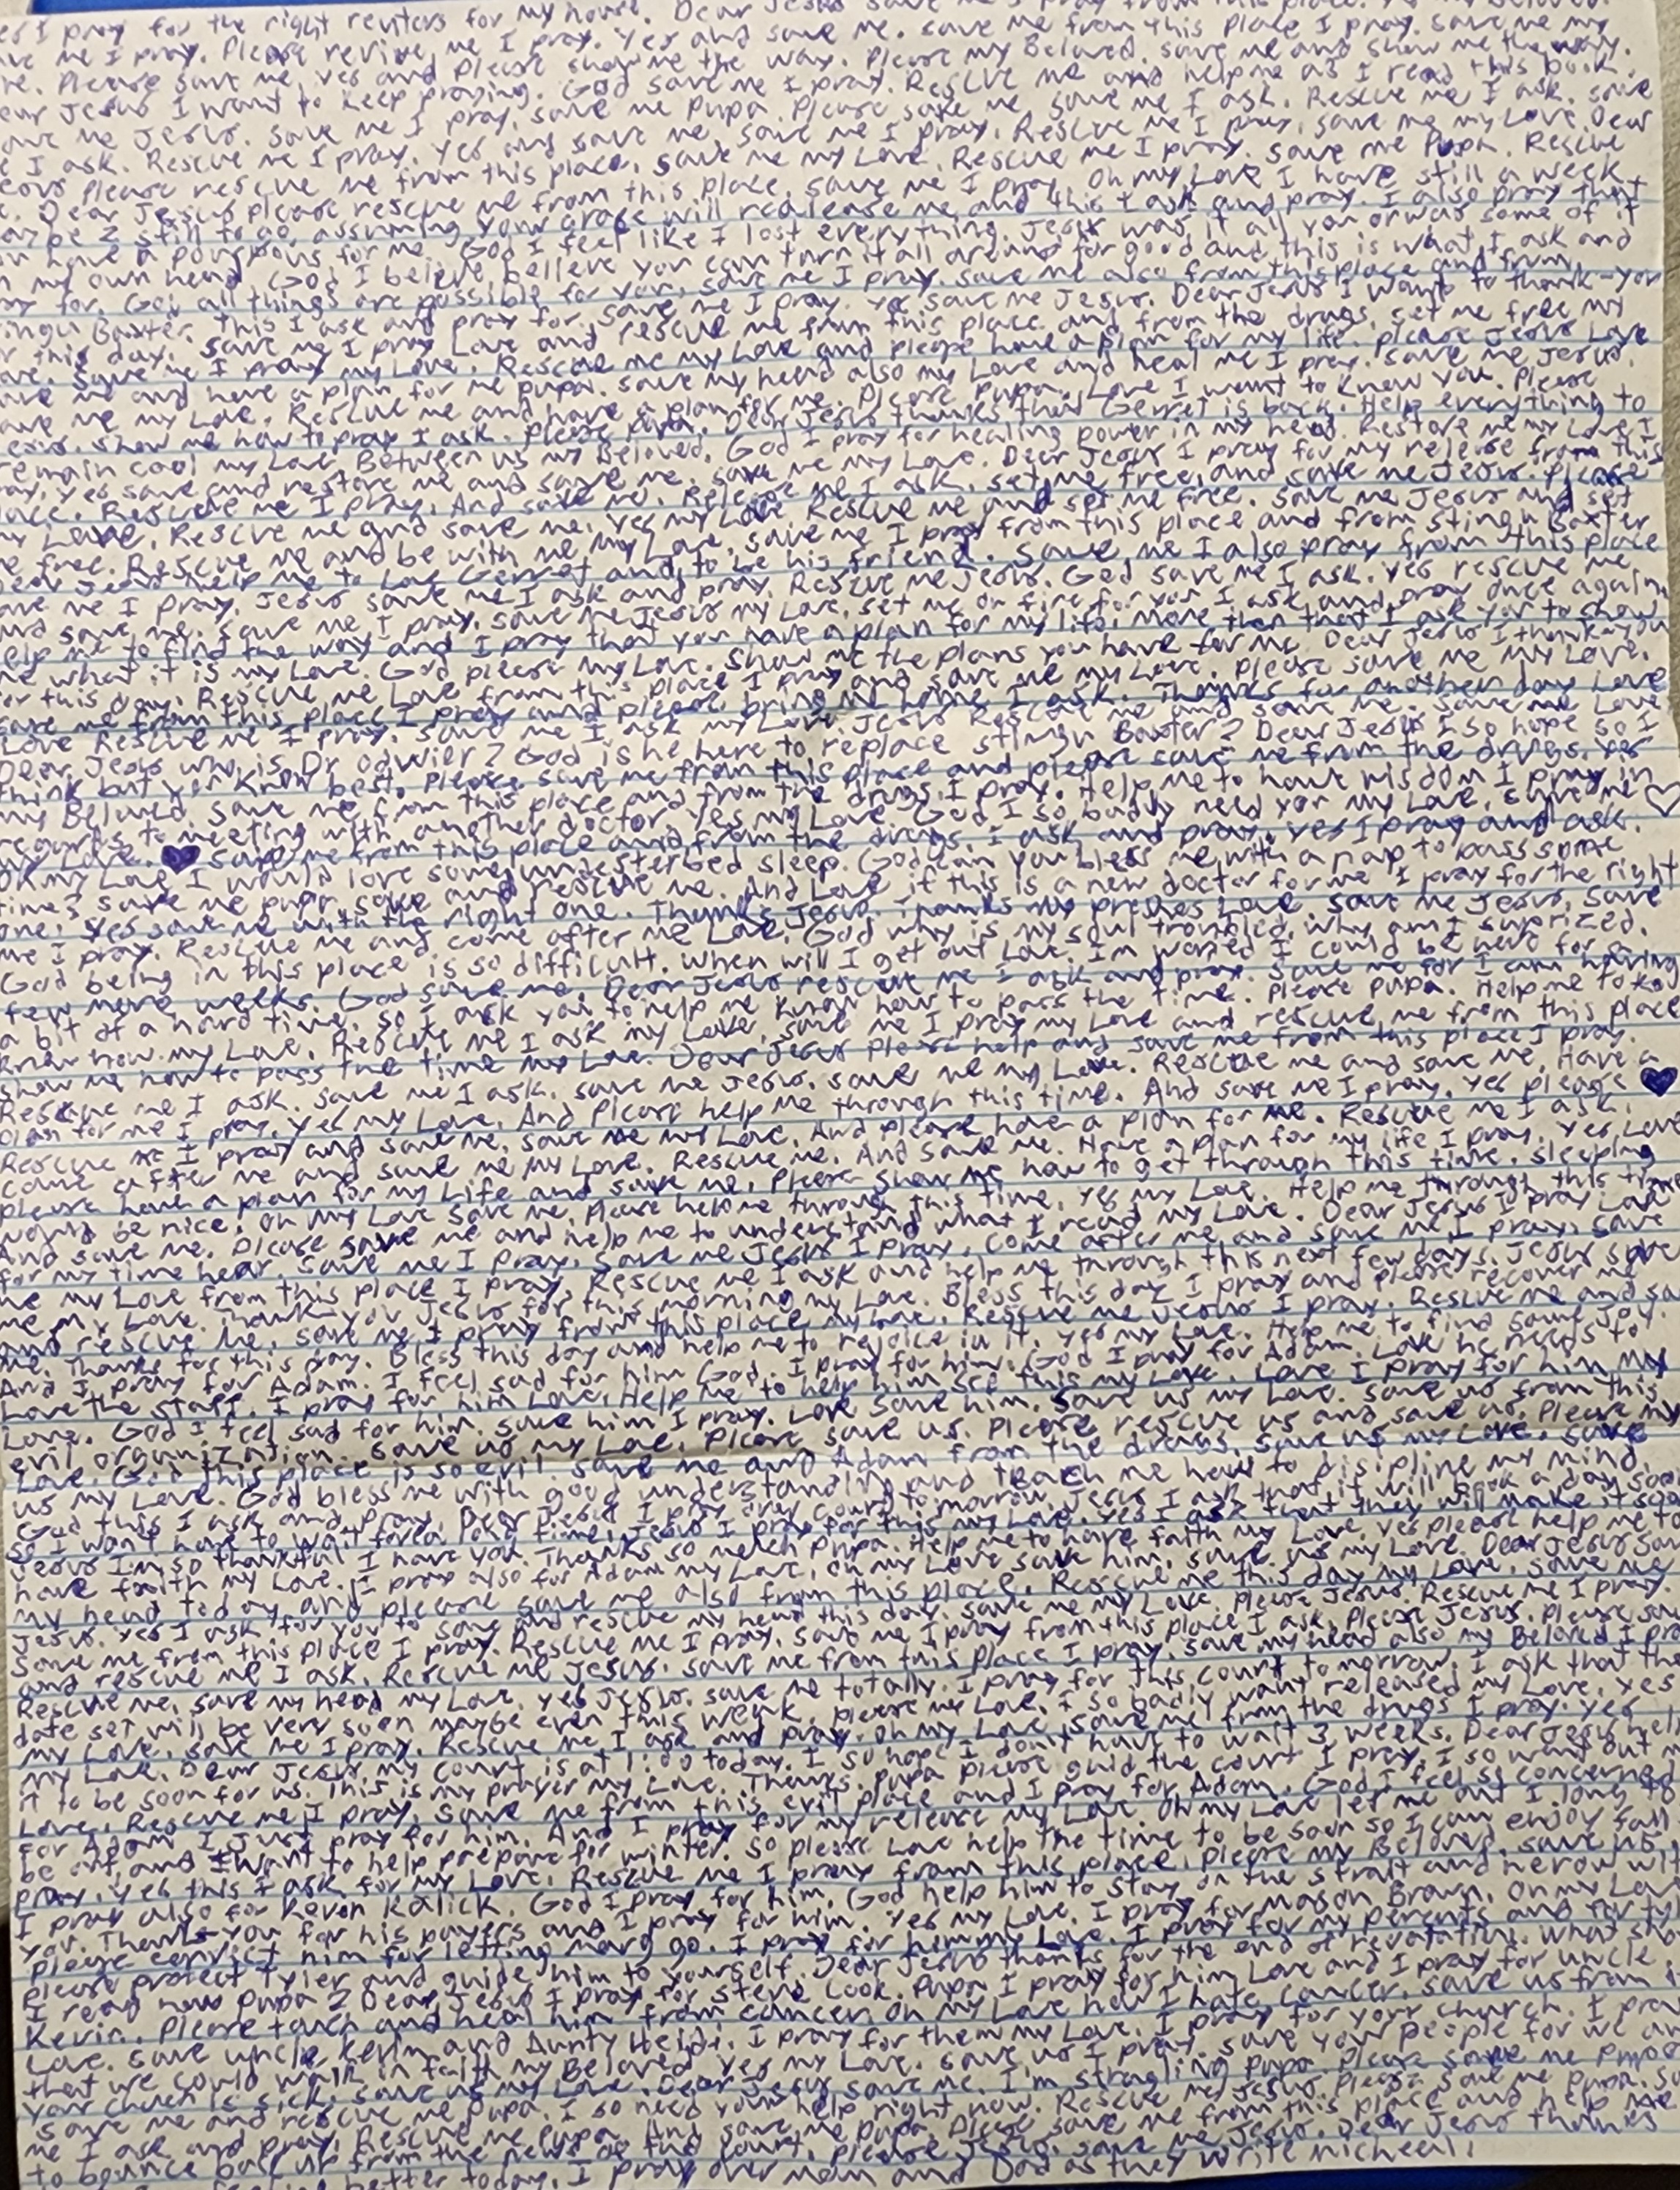 I pray for the right renters for my house. Dear Jesus save me I pray from this place. Yes my Beloved.
me I pray. Please revive me I pray. Yes and save me. save me from this place I pray. save me my
Please save me. Yes and please show me the way. Please my Beloved. save me and show me the way.
Dear Jesus I want to keep praying. God save me I pray. Rescue me and help me as I read this book.
me Jesus. save me I pray. save me Pupa. Please save me. save me I ask. Rescue me I ask. save
I ask. Rescue me I pray. Yes and save me. save me I pray. Rescue me I pray. save me my Love. Dear
Please rescue me from this place. save me my Love. Rescue me I pray. save me Pupa. Rescue
Dear Jesus please rescue me from this place. save me I pray. Oh my Love I have still a week
maybe 2 still to go, assuming your grace will realease me and this I ask and pray. I also pray that
have a pourpous for me. God I feel like I lost everything. Jesus was it all you or was some of it
my own head. God I believe believe you can turn it all around for good and this is what I ask and
for. God all things are possible for you, save me I pray. save me also from this place and from
Baxter. This I ask and pray for. save me I pray. Yes save me Jesus. Dear Jesus I want to thank-you
this day. save me I pray Love and rescue me from this place and from the drugs. set me free my
save me I pray my Love. Rescue me my Love and please have a plan for my life. please Jesus Love
me and have a plan for me Pupa. save my head also my Love and heal me I pray. save me Jesus.
me my Love. Rescue me and have a plan for me. Please Pupa. Love I want to know you. Please
show me how to pray I ask. please Pupa. Dear Jesus thanks that Gerret is back. Help everything to
remain cool my Love. Between us my Beloved. God I pray for healing power in my head. Restore me my Love I
Yes save and restore me and save me. save me my Love. Dear Jesus I pray for my release from this
Rescue me I pray. And save me. Release me I ask. set me free, and save me Jesus. Please
my Love. Rescue me and save me. Yes my Love Rescue me and set me free. save me Jesus and set
free. Rescue me and be with me my Love. save me I pray from this place and from stingu Baxter
Dear Jesus help me to Love Gerret and to be his friend. save me I also pray from this place
me I pray. Jesus save me I ask and pray. Rescue me Jesus. God save me I ask. Yes rescue me
and save me. save me I pray. save me Jesus my Love. set me on fire for you I ask and pray once again
help me to find the way and I pray that you have a plan for my life. more then that I ask you to show
me what it is my Love. God please my Love. show me the plans you have for me. Dear Jesus I thank-you
for this day. Rescue me Love from this place I pray and save me my Love. Please save me my Love.
save me from this place I pray and please bring me home I ask. Thanks for another day Love
Love Rescue me I pray. save me I ask my Love. Jesus Rescue me and save me. save me Love
Dear Jesus who is Dr odwier? God is he here to replace stingu Baxter? Dear Jesus I so hope so I
think but you know best. Please save me from this place and please save me from the drugs. Yes
my Beloved. save me from this place and from the drugs I pray. Help me to have wisdom I pray in
regards to meeting with another doctor. Yes my Love. God I so badly need you my Love. save me ♡
my Love. ♥ save me from this place and from the drugs. I ask and pray. Yes I pray and ask.
Oh my Love I would love some undesterbed sleep. God can you bless me with a nap to pass some
time? save me pupa. save and rescue me. And Love if this is a new doctor for me I pray for the right
one. Yes save me with the right one. Thanks Jesus. Thanks my preshes Love. save me Jesus. save
me I pray. Rescue me and come after me Love. God why is my soul troubled. why am I suprized.
God being in this place is so difficult. when will I get out Love. I'm woried I could be here for
few more weeks. God save me. Dear Jesus rescue me I ask and pray. save me for I am having
a bit of a hard time. so I ask you to help me know how to pass the time. Please Pupa. Help me to
know how my Love. Rescue me I ask my Love. save me I pray my Love and rescue me from this place
show me how to pass the time my Love. Dear Jesus please help and save me from this place I pray.
Rescue me I ask. save me I ask. save me Jesus. save me my Love. Rescue me and save me. Have a
plan for me I pray. Yes my Love. And please help me through this time. And save me I pray. Yes please ♥
Rescue me I pray and save me. save me my Love. And please have a plan for me. Rescue me I ask.
come after me and save me my Love. Rescue me. And save me. Have a plan for my life I pray. Yes Love
please have a plan for my life and save me. Please show me how to get through this time. sleeping
would be nice. Oh my Love save me. Please help me through this time. Yes my Love. Help me through this time
And save me. Please save me and help me to understand what I read my Love. Dear Jesus I pray Love
for my time hear. save me I pray. save me Jesus I pray. come after me and save me I pray. save
me my Love from this place I pray. Rescue me I ask and help me through this next few days. Jesus save
me my Love. Thank-you Jesus for this morning my Love. Bless this day I pray and please recover me
and rescue me. save me I pray from this place my Love. Rescue me Jesus I pray. Rescue me and
me. Thanks for this day. Bless this day and help me to rejoice in it. Yes my Love. Help me to find some joy.
And I pray for Adam. I feel sad for him God. I pray for him. God I pray for Adam. Love he needs to
Love the staff. I pray for him Love. Help me to help him see this my Love. Love I pray for him my
Love. God I feel sad for him. save him I pray. Love save him. save us my Love. save us from this
evil organization. save us my Love. Please save us. Please rescue us and save us. Please my
Love. God this place is so evil. save me and Adam from the drugs. save us my Love. save
us my Love. God bless me with good understanding and teach me how to disipline my mind.
God this I ask and pray. Dear Jesus I pray over court tomorrow. Jesus I ask that it will book a day soon
so I won't have to wait for a long time. Jesus I pray for this my Love. Yes I ask that they will make it soon
Jesus I'm so thankful I have you. Thanks so much Pupa. Help me to have faith my Love. Yes please help me to
have faith my Love. I pray also for Adam my Love. Oh my Love save him. save us my Love. Dear Jesus save
my head today and please save me also from this place. Rescue me this day my Love. save me
Jesus. Yes I ask for you to save and rescue my head this day. save me my Love. Please Jesus. Rescue me I pray
save me from this place I pray. Rescue me I pray. save me I pray from this place I ask. Please Jesus. Please
and rescue me I ask. Rescue me Jesus. save me from this place I pray. save my head also my Beloved I
Rescue me. save my head my Love. Yes Jesus. save me totally. I pray for this court tomorrow. I ask that the
date set will be very soon maybe even this week. please my Love. I so badly want released my Love. Yes
my Love. save me I pray. Rescue me I ask and pray. Oh my Love save me from the drugs I pray. Yes
my Love. Dear Jesus my court is at 1:00 today. I so hope I don't have to wait 3 weeks. Dear Jesus help
it to be soon for us. This is my prayer my Love. Thanks. Pupa please guid the court I pray. I so want out
Love. Rescue me I pray. save me from this evil place and I pray for Adam. God I feel so concerned
for Adam. I just pray for him. And I pray for my release my Love. Oh my Love let me out I long to
be out and I want to help prepare for winter. So please Love help the time to be soon so I can enjoy fall
pray. Yes this I ask for my Love. Rescue me I pray from this place. please my Beloved. save us.
I pray also for Kevon Kalick. God I pray for him. God help him to stay on the strait and nerow
you. Thank-you for his payers and I pray for him. Yes my Love. I pray for Mason Brown. Oh my Love
please convict him for letting marg go. I pray for him my Love. I pray for my parents and for
please protect Tyler and guide him to yourself. Dear Jesus thanks for the end of revatation. What
I read now Pupa? Dear Jesus I pray for Steve Cook. Pupa I pray for him Love and I pray for uncle
Kevin. Please touch and heal him from cancer. Oh my Love how I hate cancer. save us from
Love. save uncle Kevin and Aunty Heidi. I pray for them my Love. I pray for your church. I pray
that we could walk in faith my Beloved. Yes my Love. save us I pray. save your people for we
your church is sick. save us my Love. Dear Jesus save me. I'm strugling Pupa. Please save me Pupa
save me and rescue me Pupa. I so need your help right now. Rescue me Jesus. Please save me Pupa.
me I ask and pray. Rescue me Pupa. And save me Pupa. Please save me from this place and help me
to bounce back up from the news of the court. Please Jesus. save me Jesus. Dear Jesus thanks
better today. I pray over mom and Dad as they write micheal.